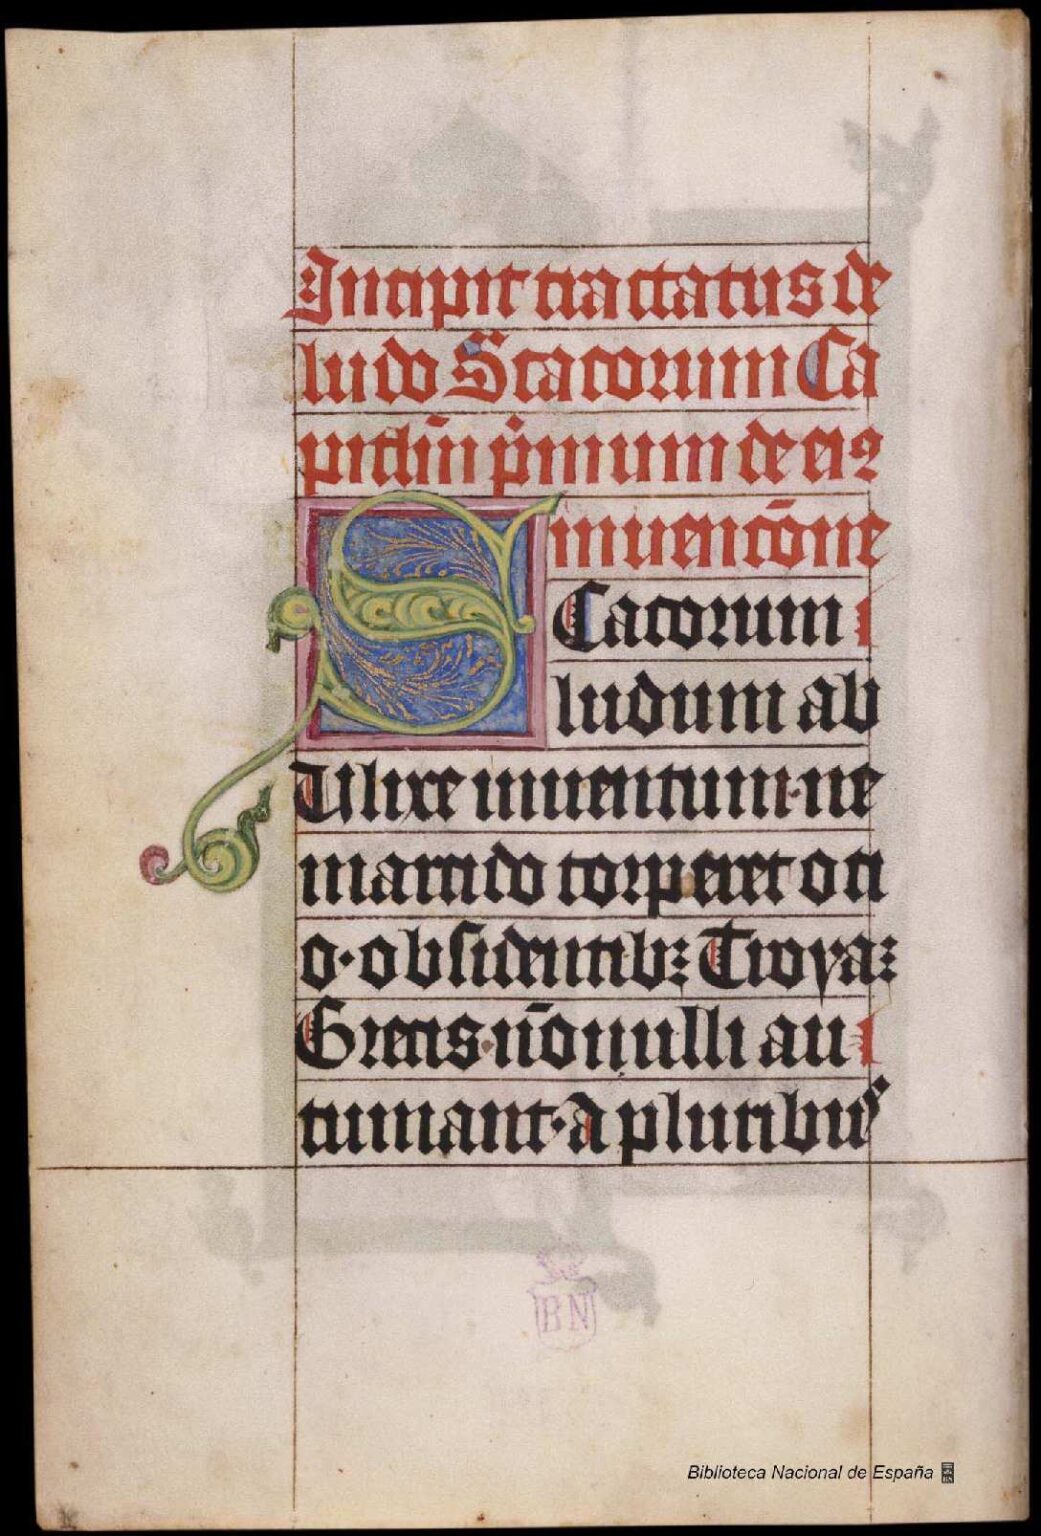 Incipit tractatus de
ludo Scacorum Ca
pitlūn p̄mum de eiꝰ
inuencōne
SCacorum
ludum ab
Ulixe inuentum· ne
marcido torperet oci
o· obsidentibꝫ Troyaꝫ
Grecis· nōnulli au
tumant· A pluribus
BN
Biblioteca Nacional de España